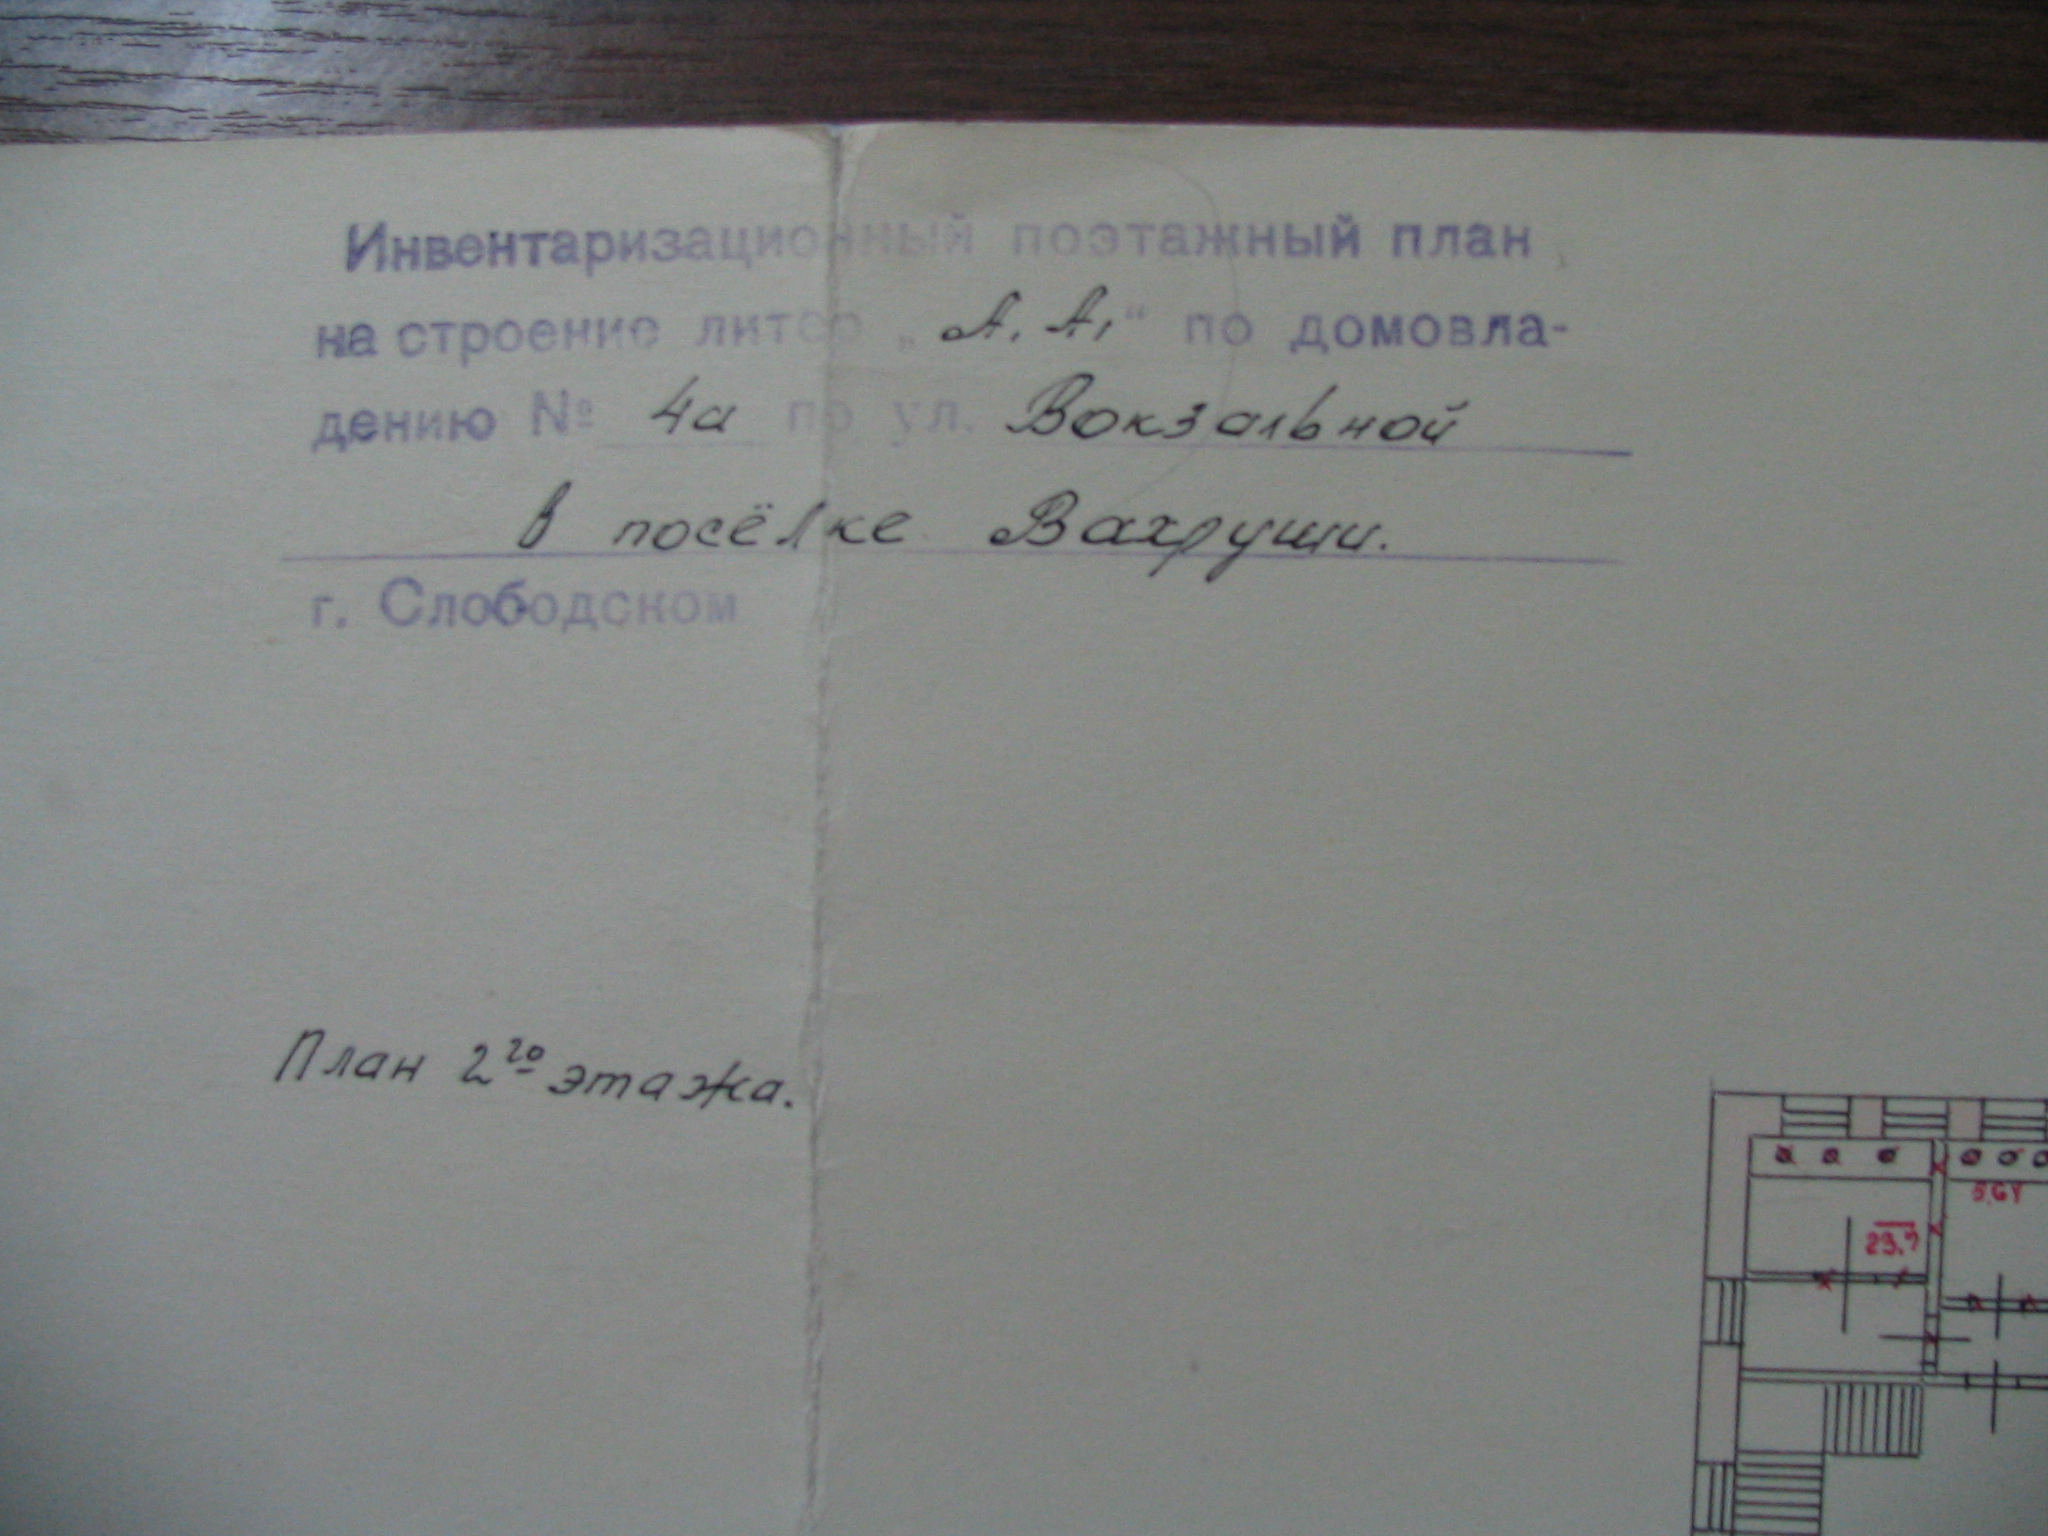 Инвентаризационный поэтажный план
на строение литер „А, А₁“ по домовла-
дению № 4а по ул. Вокзальной
в посёлке Вахруши.
г. Слободском
План 2го этажа.
5,64
23.7